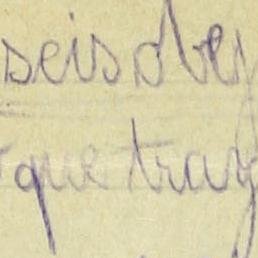 seis de
que tray